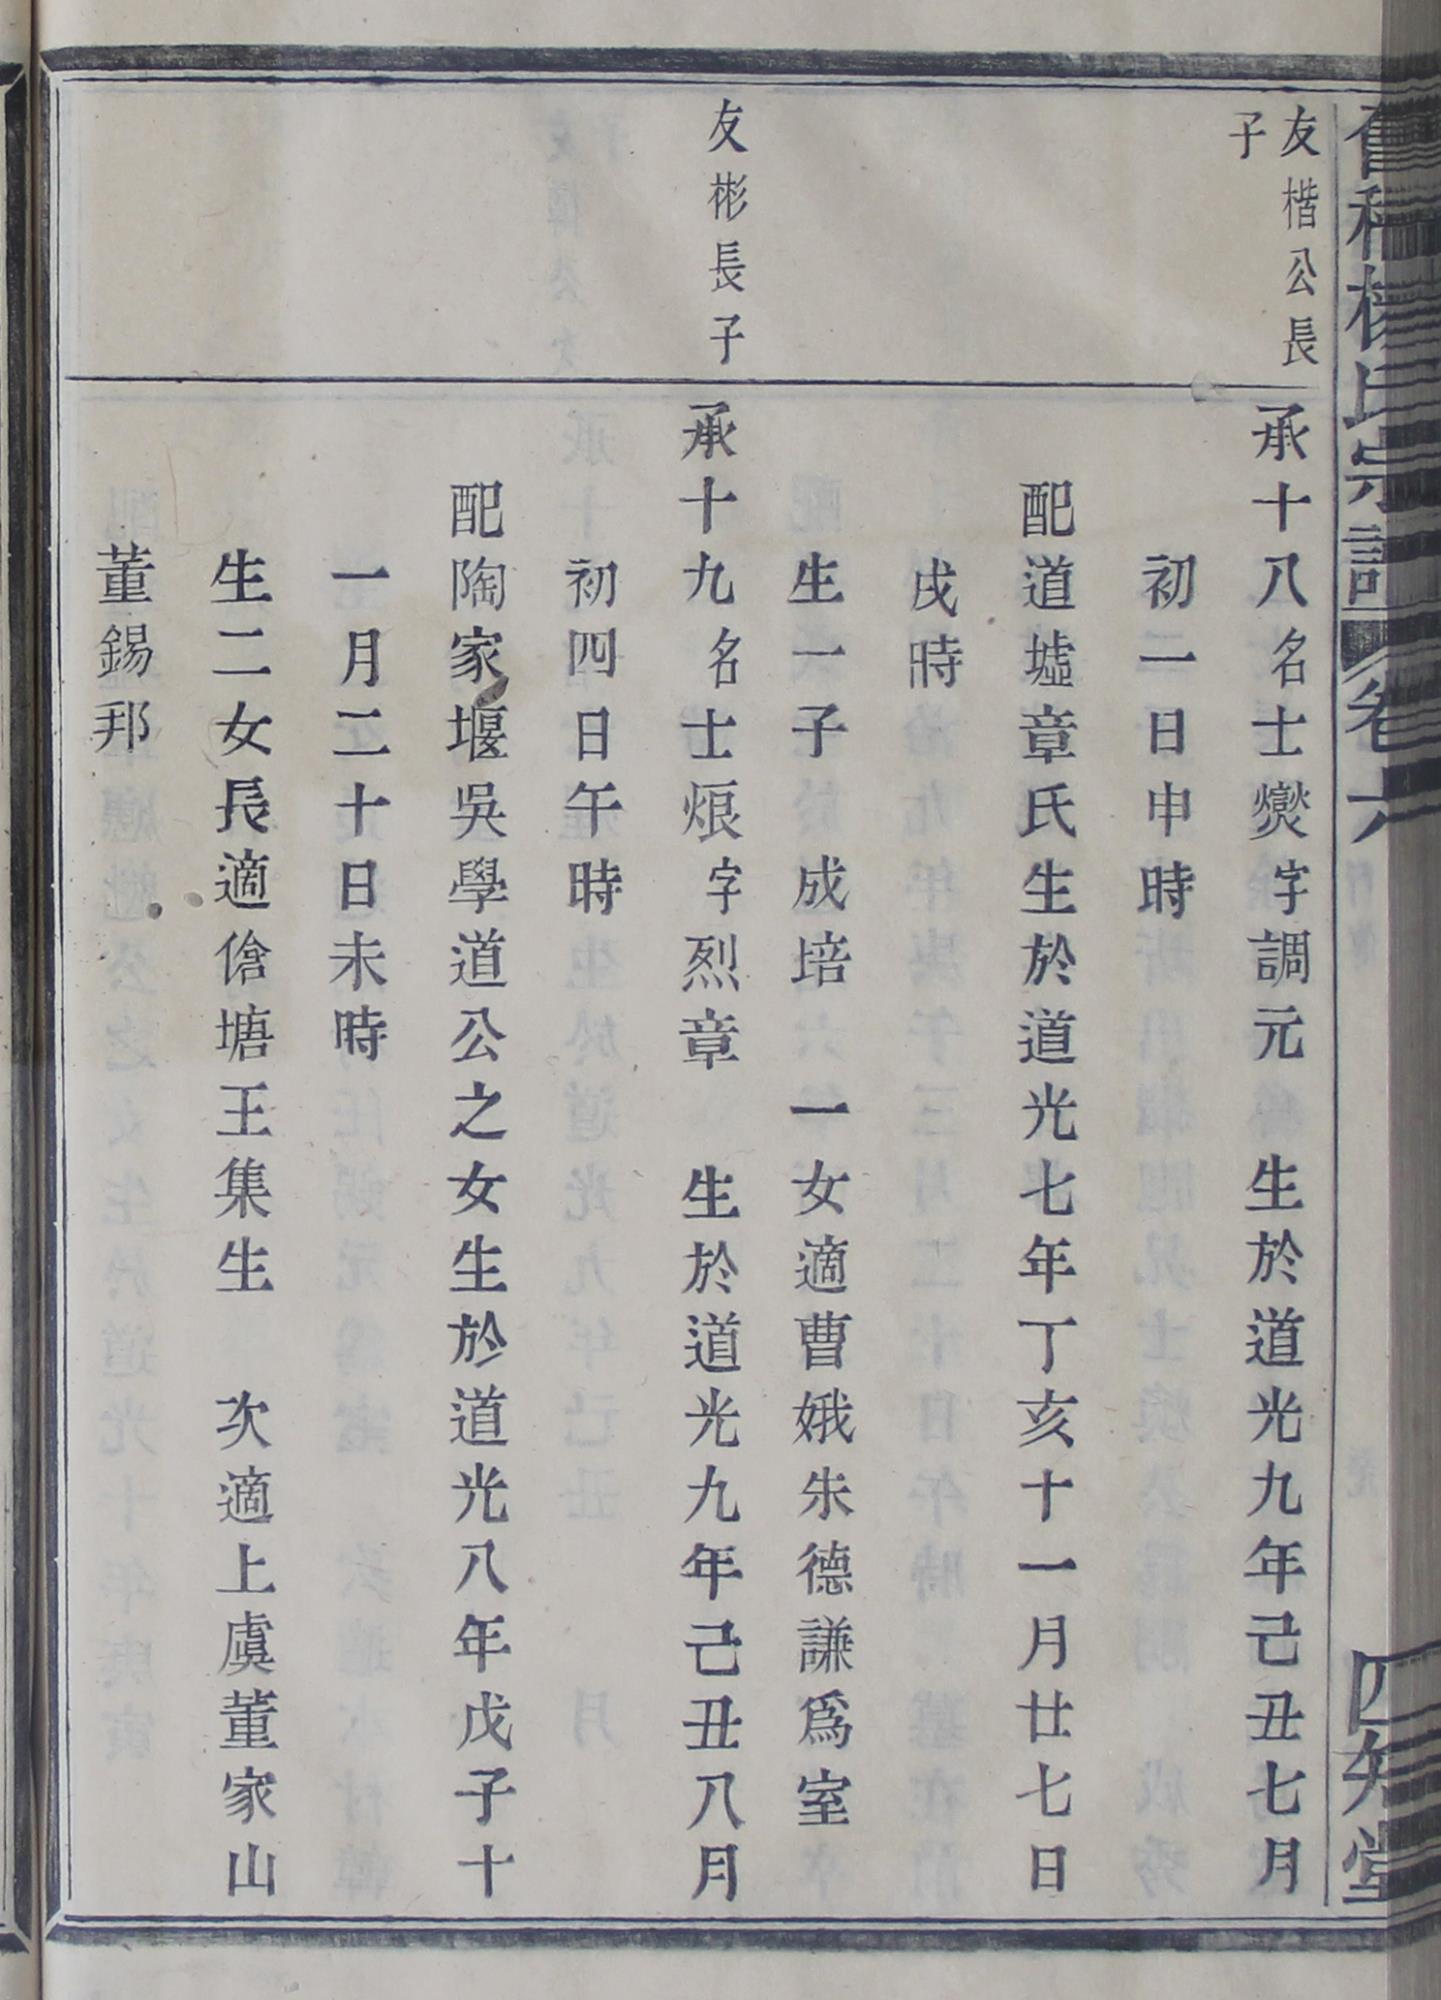 氏宗譜 卷六 四知堂
友楷公長
子
承十八名士爕字調元 生於道光九年己丑七月
初二日申時
配道墟章氏生於道光七年丁亥十一月廿七日
戌時
生一子 成培 一女適曹娥朱德謙爲室
友彬長子
承十九名士烺字烈章 生於道光九年己丑八月
初四日午時
配陶家堰吳學道公之女生於道光八年戊子十
一月二十日未時
生二女長適傖塘王集生 次適上虞董家山
董錫邦